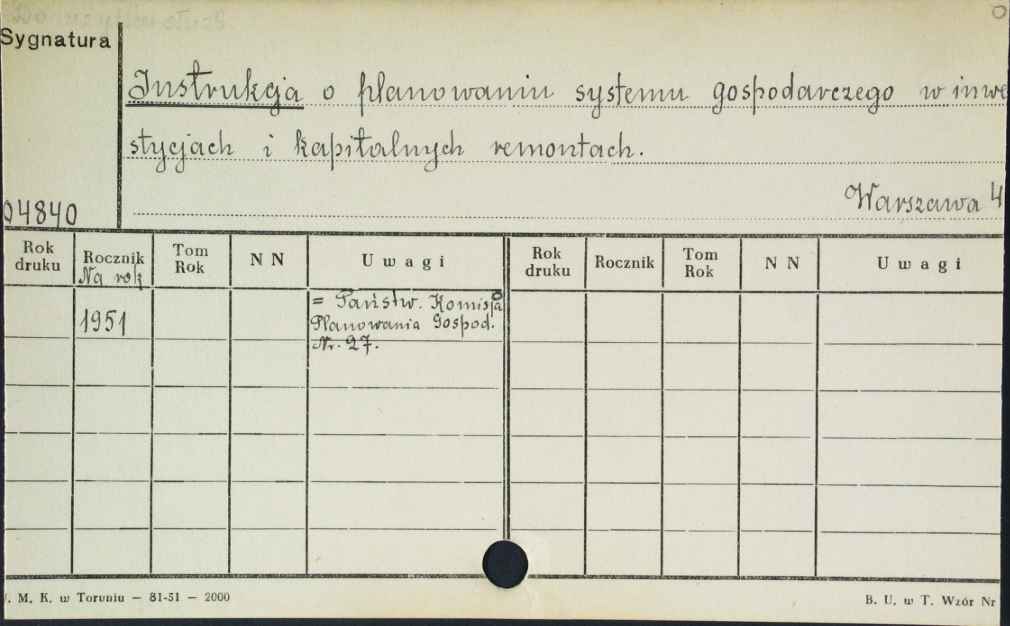 Sygnatura
Instrukcja o planowaniu systemu gospodarczego w inwe
stycjach i kapitalnych remontach.
Warszawa 4
04840
Rok druku Rocznik Tom Rok N N Uwagi Rok druku Rocznik Tom Rok N N Uwagi
Na rok
1951
= Państw. Komisja
Planowania Gospod.
Nr. 27.
. M. K. w Toruniu — 81-51 — 2000
B. U. w T. Wzór Nr